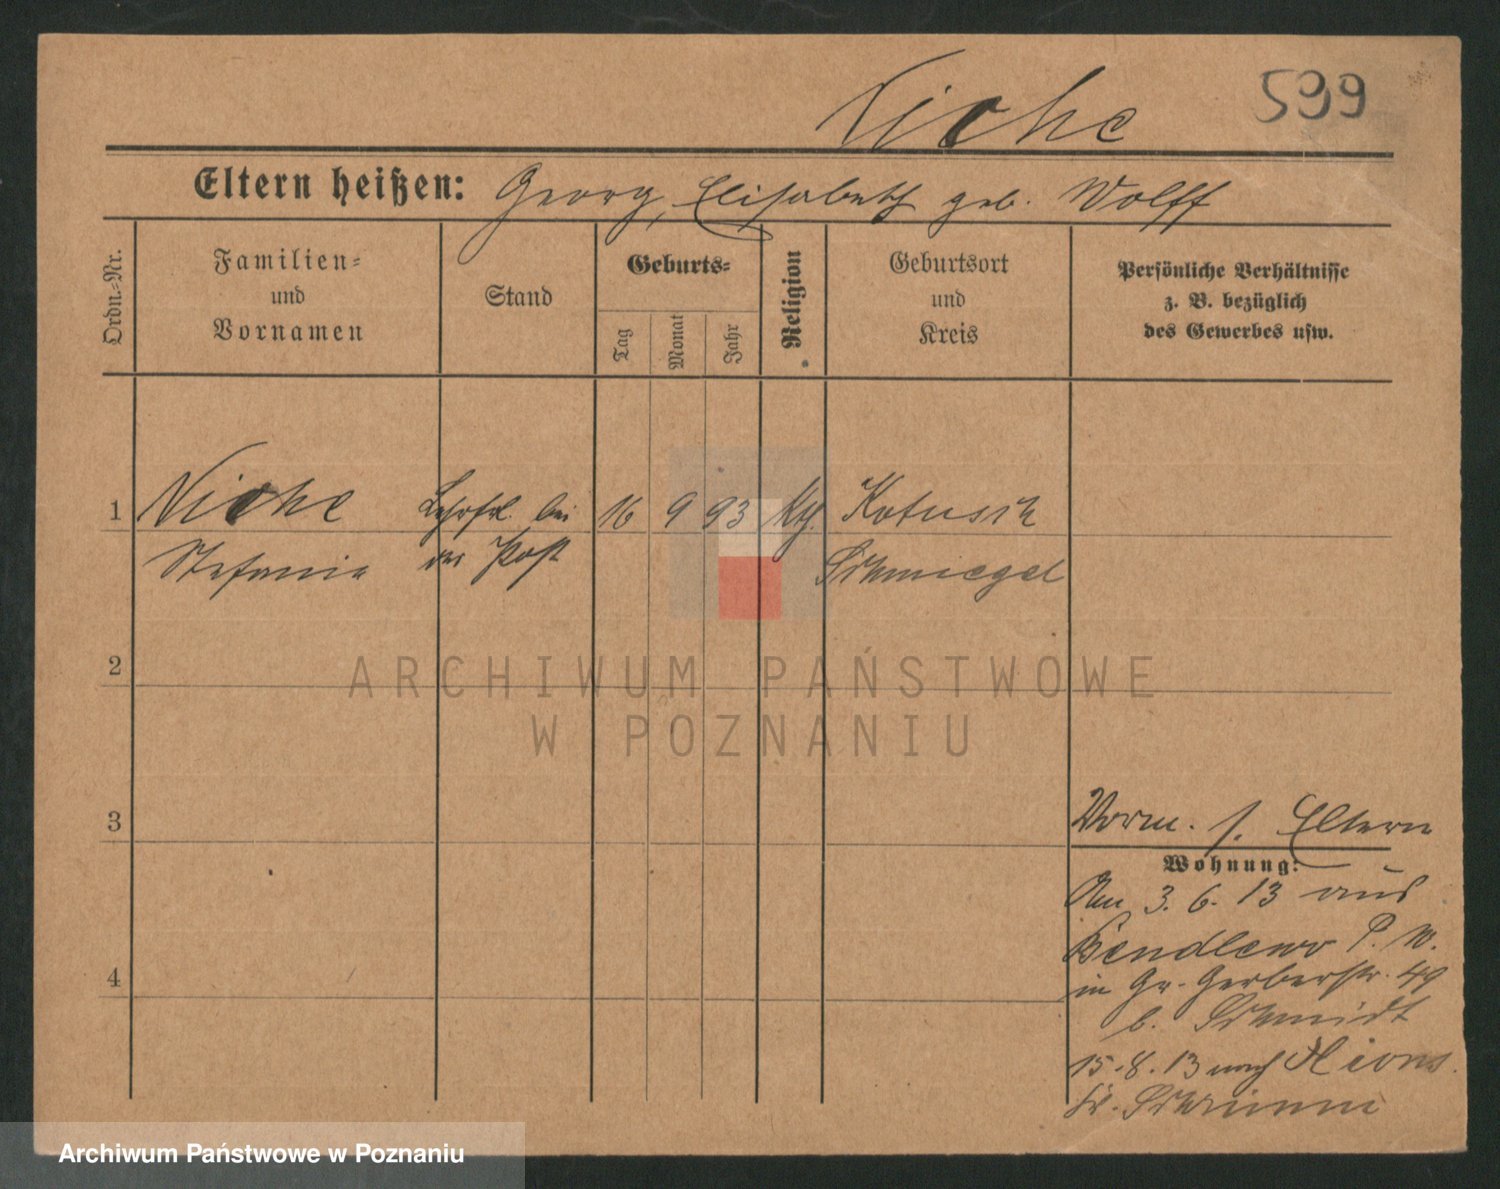 Niche 599
Eltern heißen: Georg, Elisabeth geb. Wolff
Ordn.-Nr.
Familien-
und
Vornamen
Stand
Geburts-
Tag
Monat
Jahr
Religion
Geburtsort
und
Kreis
Persönliche Verhältnisse
z. B. bezüglich
des Gewerbes usw.
1 Niche bei 16 9 93 kth. Kotusch
Stefanie der Post Schmiegel
2
3
4
Vorm. s. Eltern
Wohnung:
Am 3. 6. 13 aus
Bendlewo P. W.
in Gr. Gerberstr. 49
b. Schmidt
15. 8. 13 nach
Kr. Schrimm
ARCHIWUM PAŃSTWOWE
W POZNANIU
Archiwum Państwowe w Poznaniu